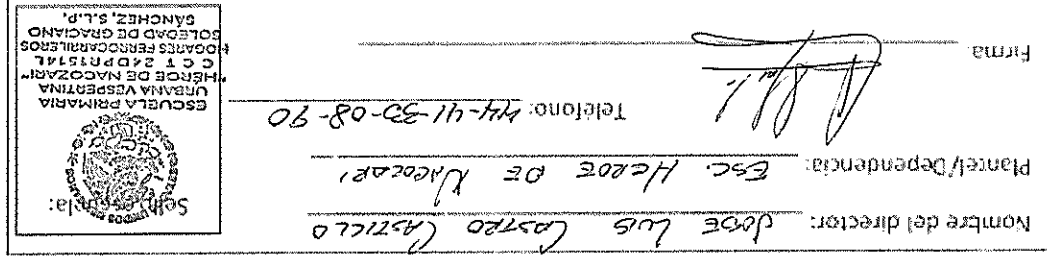 Nombre del director: JOSE LUIS CASTRO CASTILLO
Plantel/Dependencia: ESC. HEROE DE NACOZARI
Teléfono: 444-41-30-08-90
Firma
Sello escuela:
ESCUELA PRIMARIA
URBANA VESPERTINA
"HÉROE DE NACOZARI"
C C T 24DPR1514L
HOGARES FERROCARRILEROS
SOLEDAD DE GRACIANO
SÁNCHEZ, S.L.P.